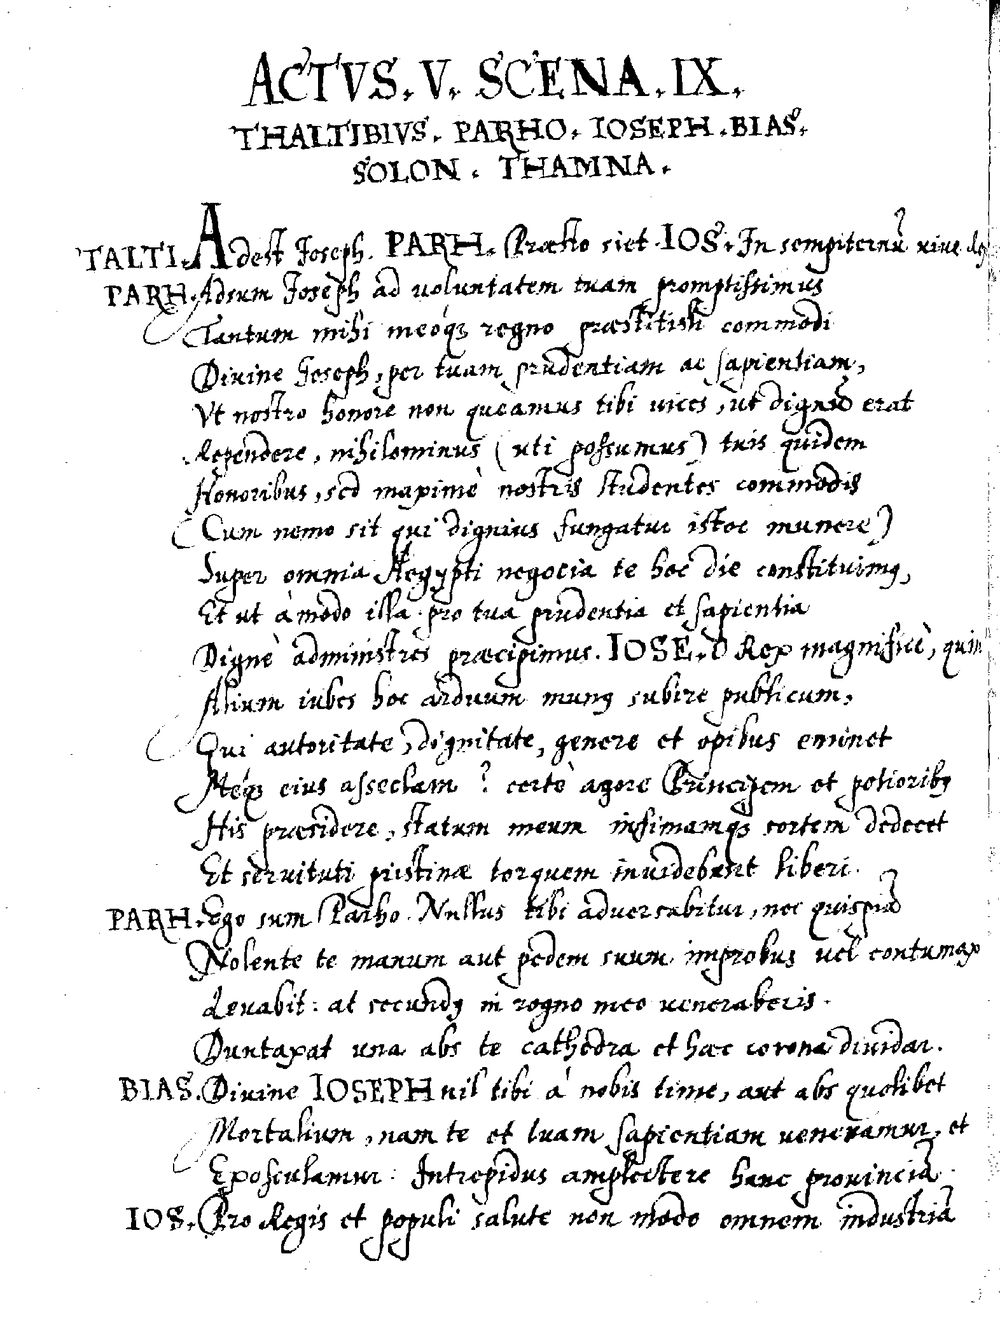 ACTVS. V. SCENA. IX.
THALTIBIVS. PARHO. IOSEPH. BIAS.
SOLON. THAMNA.
TALTI. Adest Joseph. PARH. Præsto siet. IOS. In sempiternū vive
PARH. Adsum Joseph ad voluntatem tuam promptissimus
Tantum mihi meoq̃ regno præstitisti commodi
Divine Joseph, per tuam prudentiam ac sapientiam,
Vt nostro honore non queamus tibi vices, ut dignū erat
Rependere, nihilominus (uti possumus) tuis quidem
Honoribus, sed maximè nostris studentes commodis
(Cum nemo sit qui dignius fungatur istoc munere)
Super omnia Aegypti negocia te hoc die constituimq,
Et ut à modo illa pro tua prudentia et sapientia
Dignè administres præcipimus. IOSE. O Rex magnificè, quin
Alium iubes hoc arduum munq subire publicum,
Qui autoritate, dignitate, genere et opibus eminet
Meq̃ eius asseclam? certè agere Principem et potioribq
His præsidere, statum meum infimamq̃ sortem dedecet
Et servituti pristinæ torquem invidebunt liberi.
PARH. Ego sum Parho. Nullus tibi adversabitur, nec quispiā
Nolente te manum aut pedem suum improbus vel contumax
Levabit: at secundq in regno meo veneraberis.
Duntaxat una abs te cathedra et hac corona dividar.
BIAS. Divine IOSEPH nil tibi à nobis time, aut abs quolibet
Mortalium, nam te et tuam sapientiam veneramur, et
Exosculamur: Intrepidus amplectere hanc provinciā.
IOS. Pro Regis et populi salute non modo omnem industriā